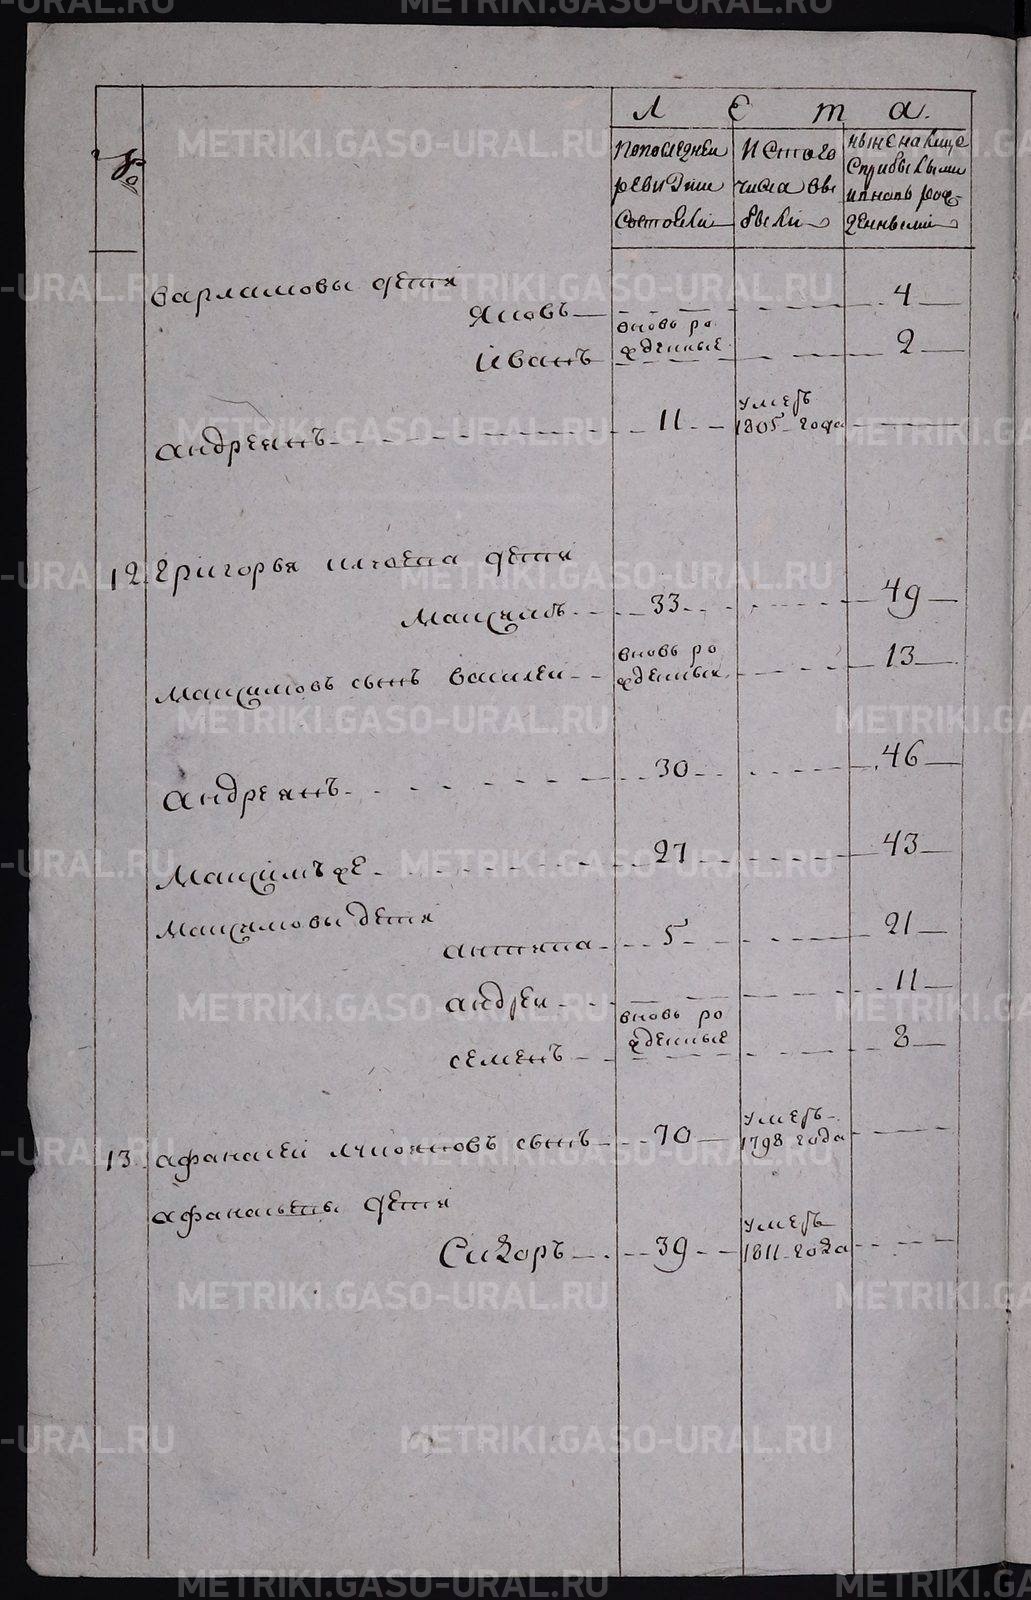 METRIKI.GASO-URAL.RU
№
Лета.
По последней ревидзии состояли
И с того числа выбыли
ныне налицо с прибылыми и вновь рожденными
варламовы дети
Яковъ 4
вновь рожденные
иванъ 2
андреянъ 11 умеръ 1805 года
12. григорья дети
Максимъ 33 49
Максимовъ сынъ василеи вновь рожденный 13
андреянъ 30 46
Максимъ же 27 43
Максимовы дети
антипа 5 21
андреи 11
вновь рожденные
семенъ 8
13. афанасеи лукояновъ сынъ 70 умеръ 1798 года
афанасьевы дети
Сидоръ 39 умеръ 1811 года